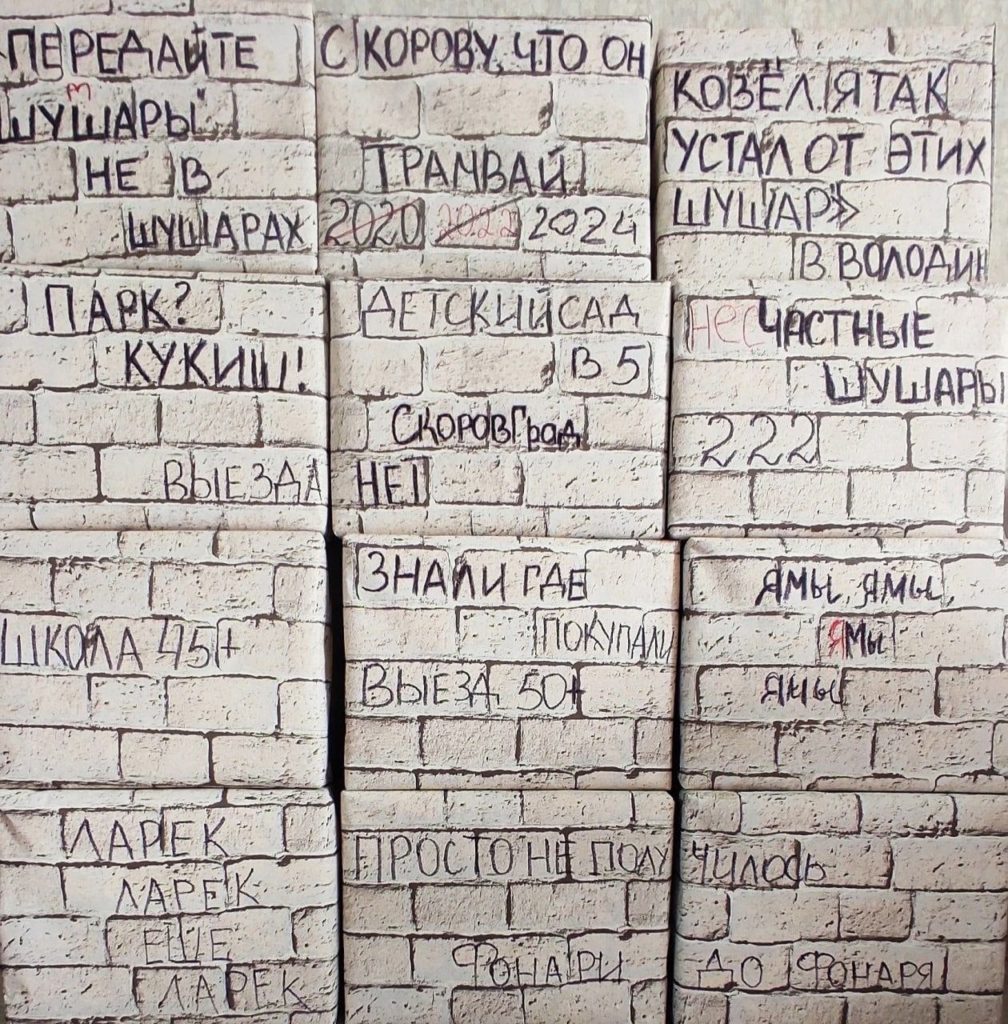 "ПЕРЕДАЙТЕ СКОРОВУ, ЧТО ОН
КОЗЁЛ. Я ТАК
ШУШАРЫ"
т
НЕ В
ТРАМВАЙ
УСТАЛ ОТ ЭТИХ
ШУШАРАХ
2020 2022 2024
ШУШАР»
В ВОЛОДИН
ПАРК?
КУКИШ!
ВЫЕЗДА
ДЕТСКИЙ САД
В 5
СКОРОВГрад
НЕТ
НЕСЧАСТНЫЕ
ШУШАРЫ
222
ШКОЛА 45+
ЗНАЛИ ГДЕ
ПОКУПАЛИ
ВЫЕЗД 50+
ЯМЫ, ЯМЫ,
ЯМЫ
ЯМЫ
ЛАРЕК
ЛАРЕК
ЕЩЕ
ЛАРЕК
ПРОСТО НЕ ПОЛУЧИЛОСЬ
ФОНАРИ ДО ФОНАРЯ